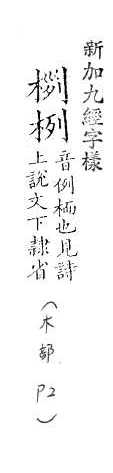 新加九經字樣
栵
音例栭也見詩
上說文下隸省
(木部 P2)